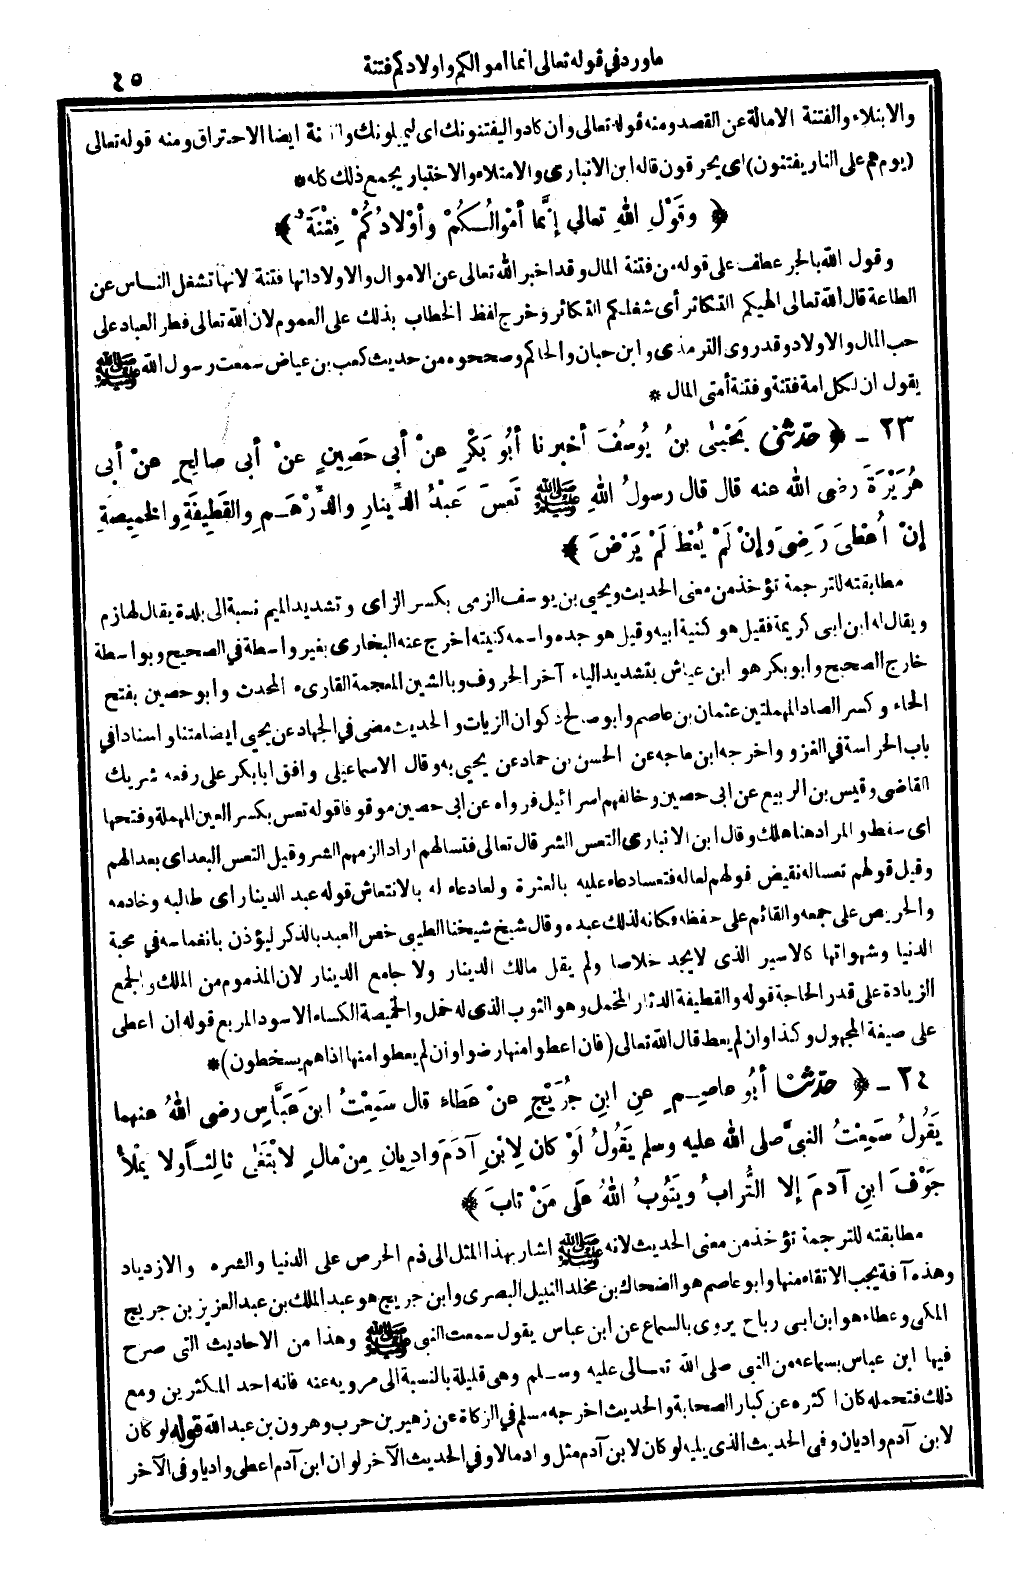 ماورد في قوله تعالى انما اموالكم واولادكم فتنة
٤٥
والابتلاء والفتنة الامالة عن القصد ومنه قوله تعالى وان كادوا ليفتنونك اى ليميلونك والفتنة ايضا الاحتراق ومنه قوله تعالى
(يوم هم على النار يفتنون) اى يحرقون قاله ابن الانبارى والامتلاء والاختبار يجمع ذلك كله *
﴿ وقَوْلِ اللهِ تعالي إنَّما أمْوالُكُمْ وأوْلادُكُمْ فِتْنَةٌ ﴾
وقول الله بالجر عطف على قوله من فتنة المال وقد اخبر الله تعالى عن الاموال والاولاد انها فتنة لانها تشغل الناس عن
الطاعة قال الله تعالى الهيكم التكاثر أى شغلكم التكاثر وخرج لفظ الخطاب بذلك على العموم لان الله تعالى فطر العباد على
حب المال والاولاد وقد روى الترمذى وابن حبان والحاكم وصححوه من حديث كعب بن عياض سمعت رسول الله ﷺ
يقول ان لكل امة فتنة وفتنة أمتى المال *
٢٣ ـ ﴿ حدّثنى يَحْيىٰ بنُ يُوسُفَ أخبرنا أبُو بَكْرٍ عنْ أبى حَصِينٍ عنْ أبى صالِحٍ عنْ أبى
هُرَيْرَةَ رضى الله عنه قال قال رسولُ اللهِ ﷺ تَعِسَ عَبْدُ الدِّينارِ والدِّرْهَمِ والقَطِيفَةِ والخمِيصةِ
إنْ أُعْطِىَ رَضِىَ وإنْ لَمْ يُعْطَ لَمْ يَرْضَ ﴾
مطابقته للترجمة تؤخذ من معنى الحديث ويحيى بن يوسف الزمى بكسر الزاى وتشديد الميم نسبة الى بلدة يقال لها زم
ويقال له ابن ابى كريمة فقيل هو كنية ابيه وقيل هو جده واسمه كنيته اخرج عنه البخارى بغير واسطة في الصحيح وبواسطة
خارج الصحيح وابو بكر هو ابن عياش بتشديد الياء آخر الحروف وبالشين المعجمة القارىء المحدث وابو حصين بفتح
الحاء وكسر الصاد المهملتين عثمان بن عاصم وابو صالح ذكوان الزيات والحديث مضى في الجهاد عن يحيى ايضا متنا واسنادا في
باب الحراسة في الغزو واخرجه ابن ماجه عن الحسن بن حماد عن يحيى به وقال الاسماعيلى وافق ابا بكر على رفعه شريك
القاضى وقيس بن الربيع عن ابى حصين وخالفهم اسرائيل فرواه عن ابى حصين موقوفا قوله تعس بكسر العين المهملة وفتحها
اى سقط والمراد هنا هلك وقال ابن الانبارى التعس الشر قال تعالى فتعسا لهم اراد الزمهم الشر وقيل التعس البعد اى بعدا لهم
وقيل قولهم تعسا له نقيض قولهم لعا له فتعسا دعاء عليه بالعثرة ولعا دعاء له بالانتعاش قوله عبد الدينار اى طالبه وخادمه
والحريص على جمعه والقائم على حفظه فكانه لذلك عبده وقال شيخ شيخنا الطيبى خص العبد بالذكر ليؤذن بانغماسه في محبة
الدنيا وشهواتها كالاسير الذى لا يجد خلاصا ولم يقل مالك الدينار ولا جامع الدينار لان المذموم من الملك والجمع
الزيادة على قدر الحاجة قوله والقطيفة الدثار المخمل وهو الثوب الذى له خمل والخميصة الكساء الاسود المربع قوله ان اعطى
على صيغة المجهول وكذا وان لم يعط قال الله تعالى (فان اعطوا منها رضوا وان لم يعطوا منها اذا هم يسخطون) *
٢٤ ـ ﴿ حدّثنا أبُو عاصِمٍ عنِ ابنِ جُرَيْجٍ عنْ عَطاءٍ قال سَمِعْتُ ابنَ عَبَّاسٍ رضى اللهُ عنهما
يَقُولُ سَمِعْتُ النبىَّ صلى الله عليه وسلم يَقُولُ لَوْ كان لِابْنِ آدَمَ وَادِيانِ مِنْ مالٍ لابْتَغَى ثالِثًا ولا يَمْلَأُ
جَوْفَ ابنِ آدمَ إلا التُّرابُ ويَتُوبُ اللهُ عَلَى مَنْ تابَ ﴾
مطابقته للترجمة تؤخذ من معنى الحديث لانه ﷺ اشار بهذا المثل الى ذم الحرص على الدنيا والشره والازدياد
وهذه آفة يجب الاتقاء منها وابو عاصم هو الضحاك بن مخلد النبيل البصرى وابن جريج هو عبد الملك بن عبد العزيز بن جريج
المكى وعطاء هو ابن ابى رباح يروى بالسماع عن ابن عباس يقول سمعت النبى ﷺ وهذا من الاحاديث التى صرح
فيها ابن عباس بسماعه من النبى صلى الله تعالى عليه وسلم وهى قليلة بالنسبة الى مرويه عنه فانه احد المكثرين ومع
ذلك فتحمله كان اكثره عن كبار الصحابة والحديث اخرجه مسلم في الزكاة عن زهير بن حرب وهرون بن عبد الله قوله لو كان
لابن آدم واديان وفى الحديث الذى يليه لو كان لابن آدم مثل واد مالا وفي الحديث الآخر لو ان ابن آدم اعطى واديا وفى الآخر